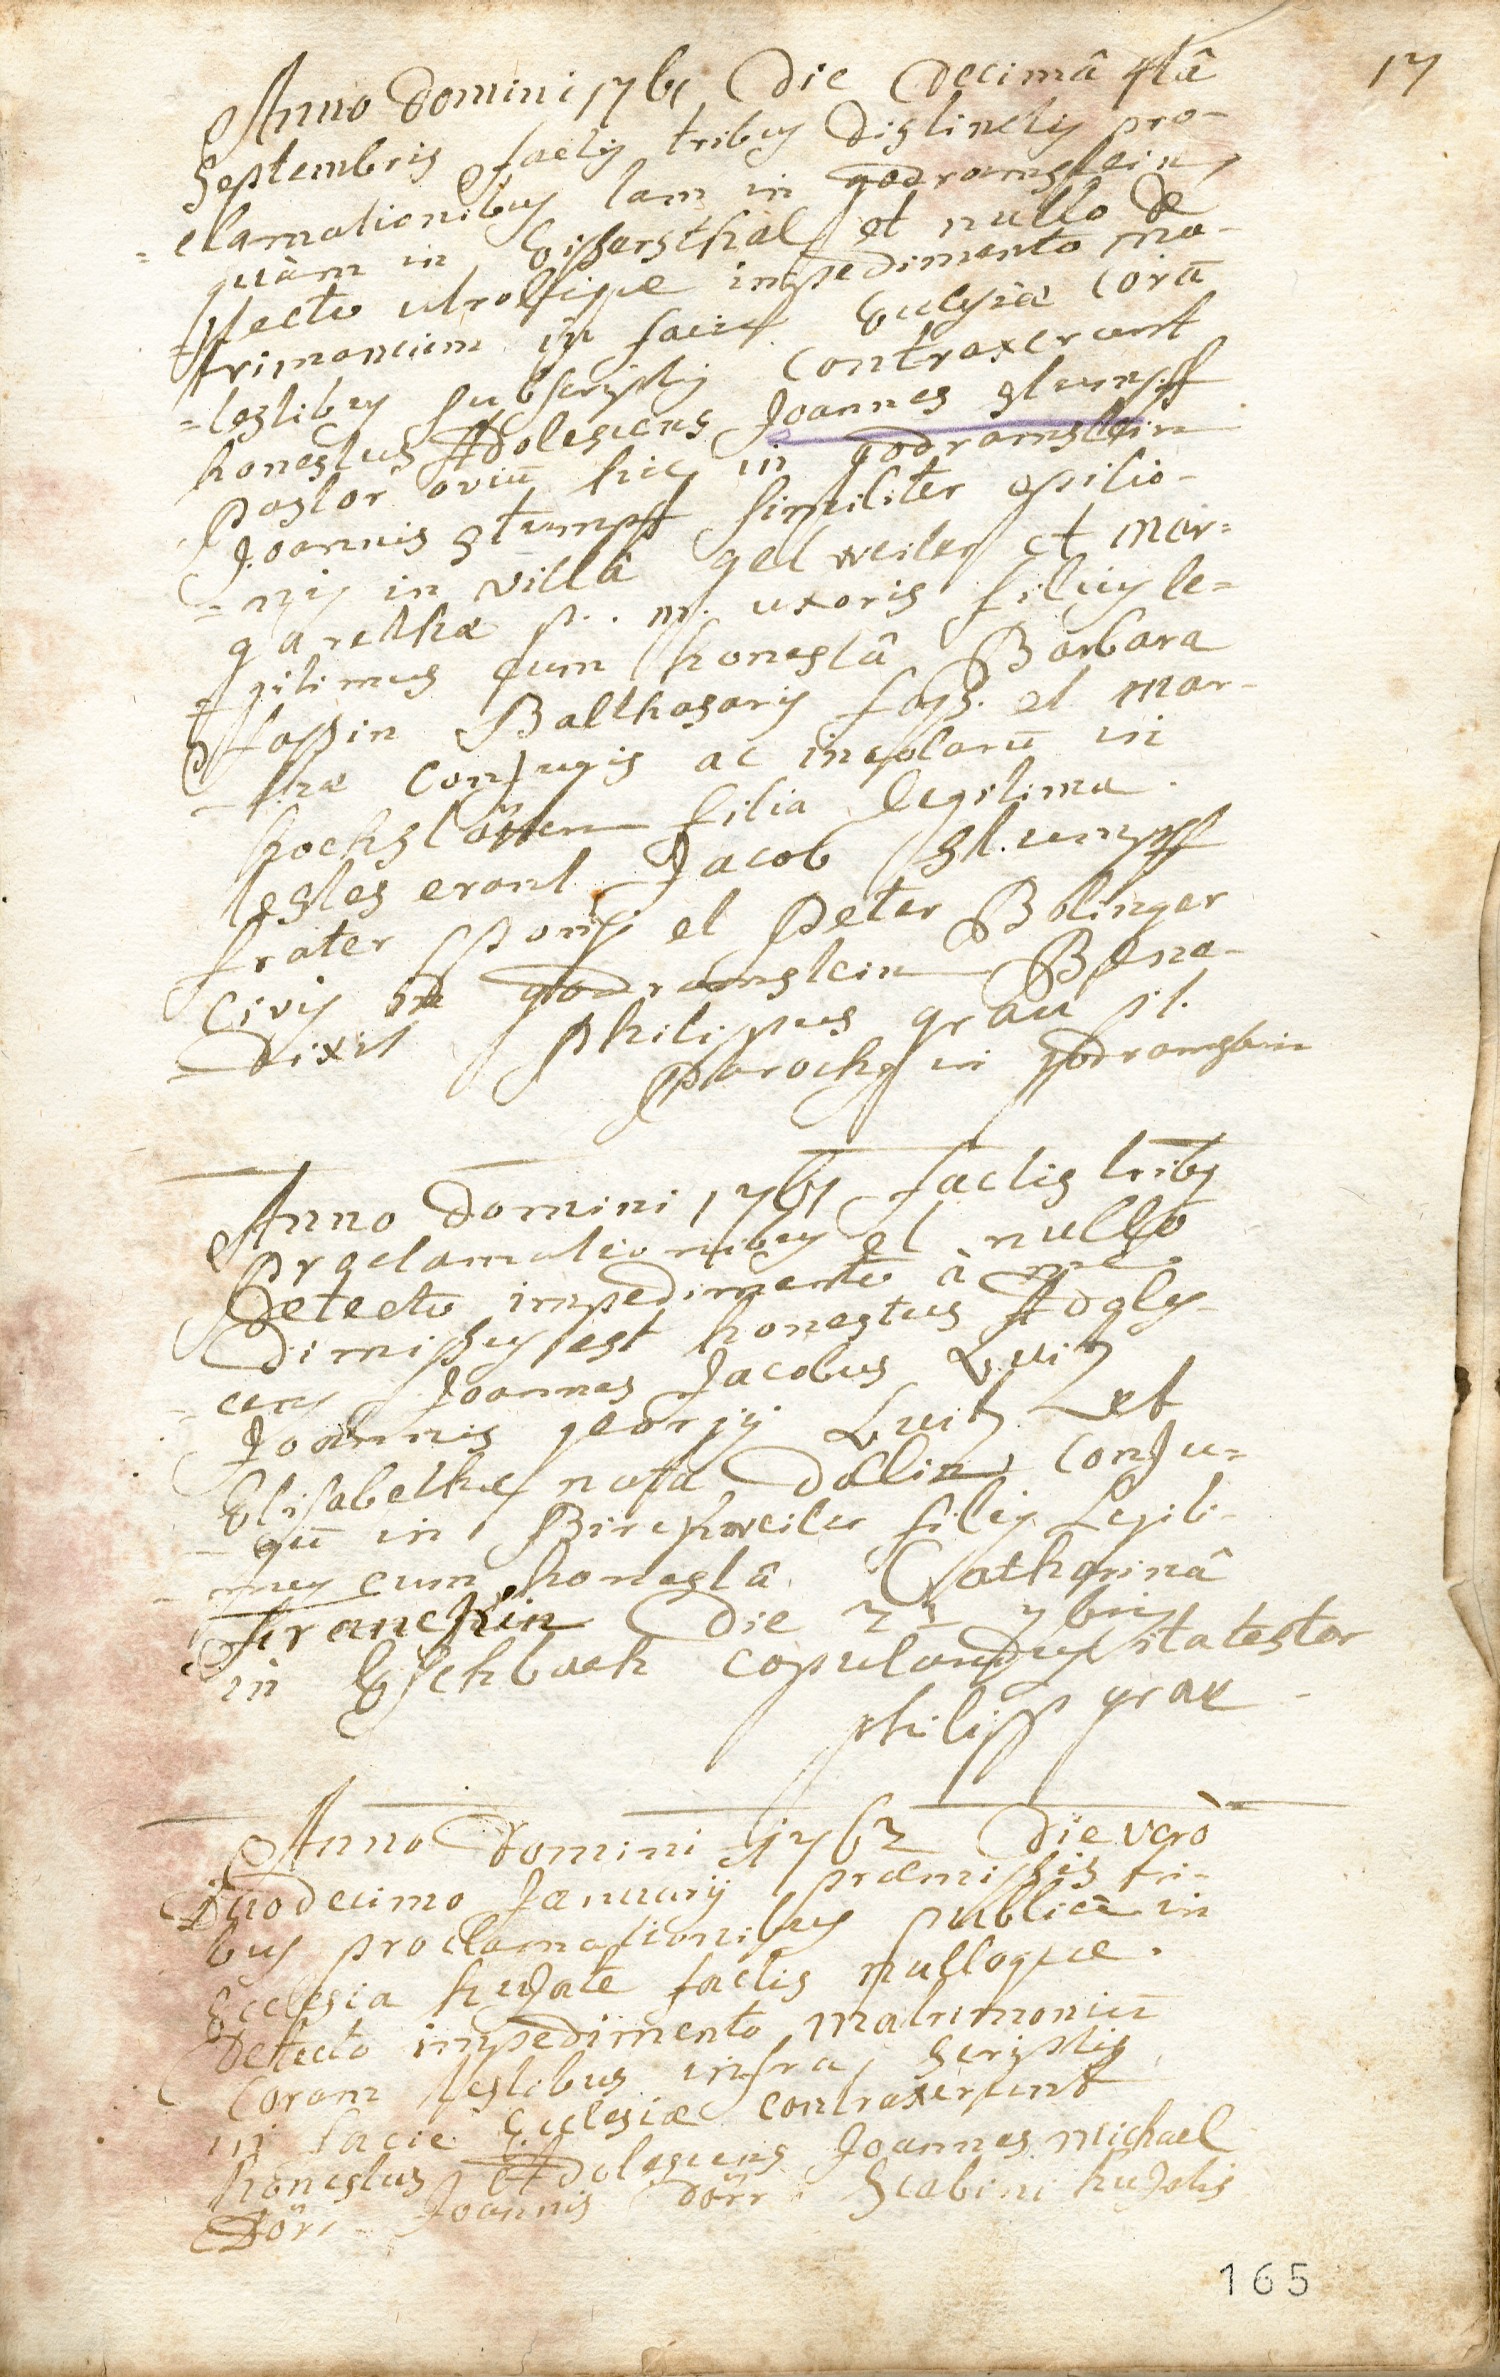 17
Anno Domini 1761 Die Decimâ 4tâ
Septembris factis tribus distinctis pro-
=clamationibus tam in godramstein,
quàm in Eisserssthal et nullo de
=tecto utrobique impedimento ma-
trimonium in facie Ecclesiæ corã
=testibus subscriptis contraxerunt
honestus Adolescens Joannes stumpff
Pastor oviũ hic in godramstein
Joannis stumpff similiter opilio-
=nis in villâ gelweiler et Mar=
garethæ p. m. uxoris filius le=
=gitimus cum honestâ Barbara
fassin Balthasaris fass. et Mar-
-thæ conjugis ac incolarũ in
hochstätten filia legitima.
testes erant Jacob stumpff
frater sponsi et Peter Bolinger
Civis in godramstein Bene-
-dixit Philippus grau p.t.
Parochus in godramstein
Anno Domini 1761 factis tribus
Proclamationibus et nullo
Detecto impedimento à me
Dimissus est honestus Adoles-
-cens Joannes Jacobus Luitz
Joannis georgij Luitz et
Elisabethæ nata Dollin conju=
-gũ in Birckweiler filius Legiti-
-mus cum honestâ Catharinâ
Franckin Die 22 7bris
in Eschbach copulandus ita testor
philipp grau
Anno Domini 1762 Die verò
Duodecimo Januarij præmissis tri-
bus proclamationibus publicè in
Ecclesia hujate factis nulloque
Detecto impedimento Matrimoniũ
coram testibus infra scriptis
in facie Ecclesiæ contraxerunt
honestus Adolescens Joannes Michael
Dörr Joannis Dörr Scabini hujatis
165